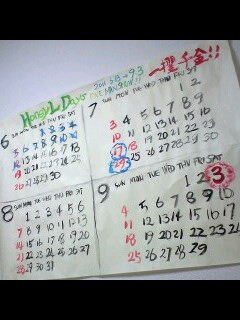 Honey L Days
2011 5/18 → 9.3
ONE MAN SHOW!!
一攫千金!!
6
SUN MON TUE WED THU FRI SAT
1 2 3 4
7
SUN MON TUE WED THU FRI SAT
1 2
3 4 5 6 7 8 9
10 11 12 13 14 15 16
17 18 19 20 21 22 23
24 25 26 27 28 29 30
31
8
SUN MON TUE WED THU FRI SAT
1 2 3 4 5 6
7 8 9 10 11 12 13
14 15 16 17 18 19 20
21 22 23 24 25 26 27
28 29 30 31
9
SUN MON TUE WED THU FRI SAT
1 2 3
4 5 6 7 8 9 10
11 12 13 14 15 16 17
18 19 20 21 22 23 24
25 26 27 28 29